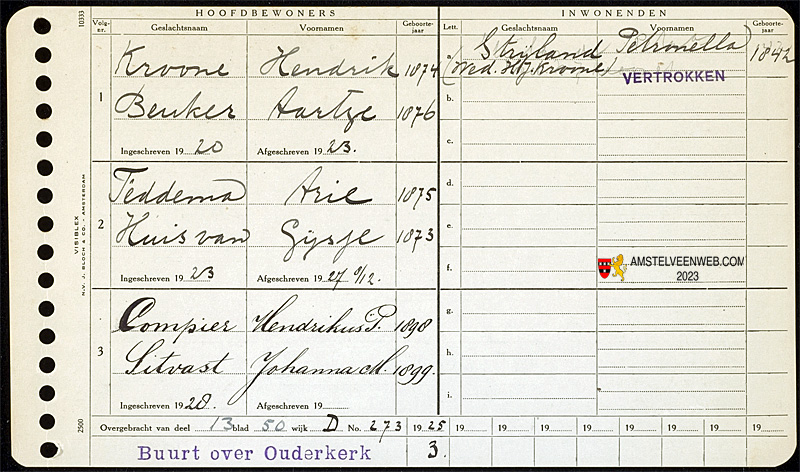 HOOFDBEWONERS
INWONENDEN
10333
Volg-
nr.
Geslachtsnaam
Voornamen
Geboorte-
jaar
Lett.
Geslachtsnaam
Voornamen
Geboorte-
jaar
1
Kroone Hendrik 1874
Beuker Aartje 1876
Ingeschreven 1920 Afgeschreven 1923.
Strijland Petronella 1842
(Wed. H.J. Kroone)
VERTROKKEN
b.
c.
2
Teddema Arie 1875
Huis van Gijsje 1873
Ingeschreven 1923 Afgeschreven 1927 9/12.
d.
e.
f.
AMSTELVEENWEB.COM
2023
3
Compier Hendrikus P. 1898
Sitvast Johanna M. 1899.
Ingeschreven 1928. Afgeschreven 19
g.
h.
i.
VISIBLEX
N.V. v/h BLOCH & CO. AMSTERDAM
2500
Overgebracht van deel 13 blad 50 wijk D No. 273 1925 19 19 19 19 19 19 19 19
Buurt over Ouderkerk 3.